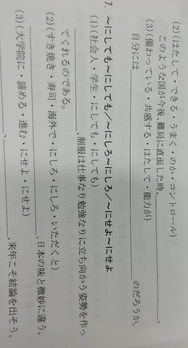 (2)(はたして・できる・うまく・のか・コントロール)
このような国が今後、難局に直面した時、
(3)(備わっている・共感する・はたして・能力が)
自分には のだろうか。
7. ～にしても～にしても／～にしろ～にしろ／～にせよ～にせよ
(1)(社会人・学生・にしても・にしても)
、制服は仕事なり勉強なりに立ち向かう姿勢を作っ
てくれるのである。
(2)(すき焼き・寿司・海外で・にしろ・にしろ・いただくと)
、日本の味と微妙に違う。
(3)(大学院に・諦める・進む・にせよ・にせよ)
、来年こそ結論を出そう。